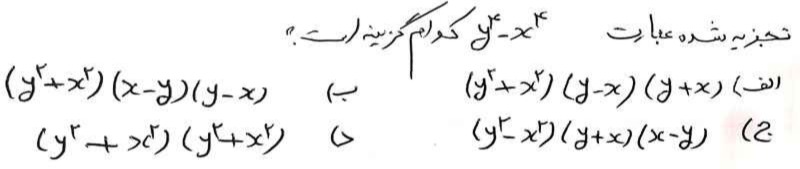 تجزیه شده عبارت y⁴-x⁴ کدام گزینه است؟
الف) (y²+x²)(y-x)(y+x) ب) (y²+x²)(x-y)(y-x)
ج) (y²-x²)(y+x)(x-y) د) (y²+x²)(y²+x²)